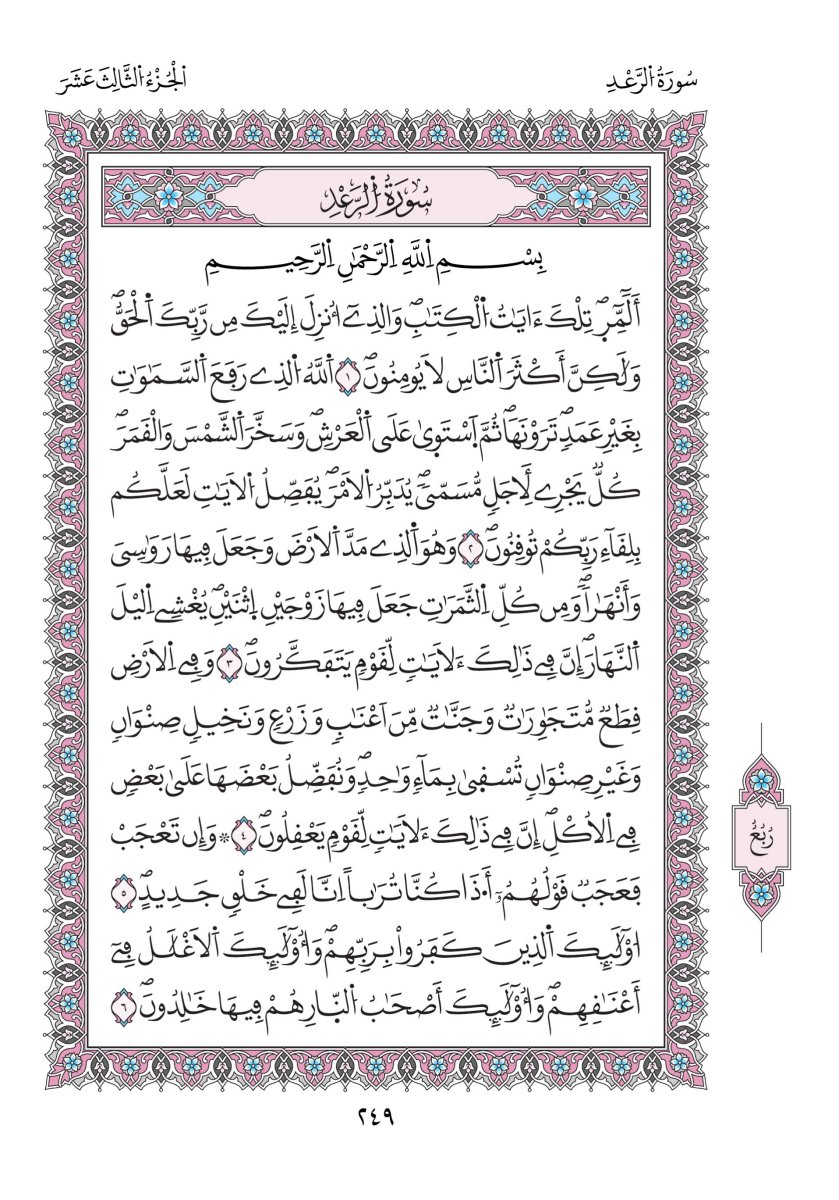 سُورَةُ الرَّعْدِ
الْجُزْءُ الثَّالِثَ عَشَرَ
سُورَةُ الرَّعْدِ
بِسْمِ اِ۬للَّهِ اِ۬لرَّحْمَٰنِ اِ۬لرَّحِيمِ
أَلَٓمِّٓرۖ تِلْكَ ءَايَٰتُ اُ۬لْكِتَٰبِۖ وَالذِےٓ أُنزِلَ إِلَيْكَ مِن رَّبِّكَ اَ۬لْحَقُّۖ
وَلَٰكِنَّ أَكْثَرَ اَ۬لنَّاسِ لَا يُومِنُونَۖ ١ اَ۬للَّهُ اُ۬لذِے رَفَعَ اَ۬لسَّمَٰوَٰتِ
بِغَيْرِ عَمَدٖ تَرَوْنَهَاۖ ثُمَّ اَ۪سْتَوَىٰ عَلَى اَ۬لْعَرْشِۖ وَسَخَّرَ اَ۬لشَّمْسَ وَالْقَمَرَۖ
كُلّٞ يَجْرِے لِأَجَلٖ مُّسَمّيٗۖ يُدَبِّرُ اُ۬لَامْرَۖ يُفَصِّلُ اُ۬لَايَٰتِ لَعَلَّكُم
بِلِقَآءِ رَبِّكُمْ تُوقِنُونَۖ ٢ وَهُوَ اَ۬لذِے مَدَّ اَ۬لَارْضَ وَجَعَلَ فِيهَا رَوَٰسِيَ
وَأَنْهَٰراٗۖ وَمِن كُلِّ اِ۬لثَّمَرَٰتِ جَعَلَ فِيهَا زَوْجَيْنِ اِ۪ثْنَيْنِۖ يُغْشِے اِ۬ليْلَ
اَ۬لنَّهَارَۖ إِنَّ فِے ذَٰلِكَ ءَلَايَٰتٖ لِّقَوْمٖ يَتَفَكَّرُونَۖ ٣ وَفِے اِ۬لَارْضِ
قِطَعٞ مُّتَجَٰوِرَٰتٞ وَجَنَّٰتٞ مِّنَ اَعْنَٰبٖ وَزَرْعٖ وَنَخِيلٖ صِنْوَانٖ
وَغَيْرِ صِنْوَانٖ تُسْقَىٰ بِمَآءٖ وَٰحِدٖۖ وَنُفَضِّلُ بَعْضَهَا عَلَىٰ بَعْضٖ
فِے اِ۬لُاكْلِۖ إِنَّ فِے ذَٰلِكَ ءَلَايَٰتٖ لِّقَوْمٖ يَعْقِلُونَۖ ٤ ۞ وَإِن تَعْجَبْ
فَعَجَبٞ قَوْلُهُمُۥٓ أَ.ذَا كُنَّا تُرَٰباً اِنَّا لَفِے خَلْقٖ جَدِيدٍۖ ٥
ا۟وْلَٰٓئِكَ اَ۬لذِينَ كَفَرُواْ بِرَبِّهِمْۖ وَأُوْلَٰٓئِكَ اَ۬لَاغْلَٰلُ فِےٓ
أَعْنَٰقِهِمْۖ وَأُوْلَٰٓئِكَ أَصْحَٰبُ اُ۬لنّ۪ارِ هُمْ فِيهَا خَٰلِدُونَۖ ٦
رُبُعُ
٢٤٩